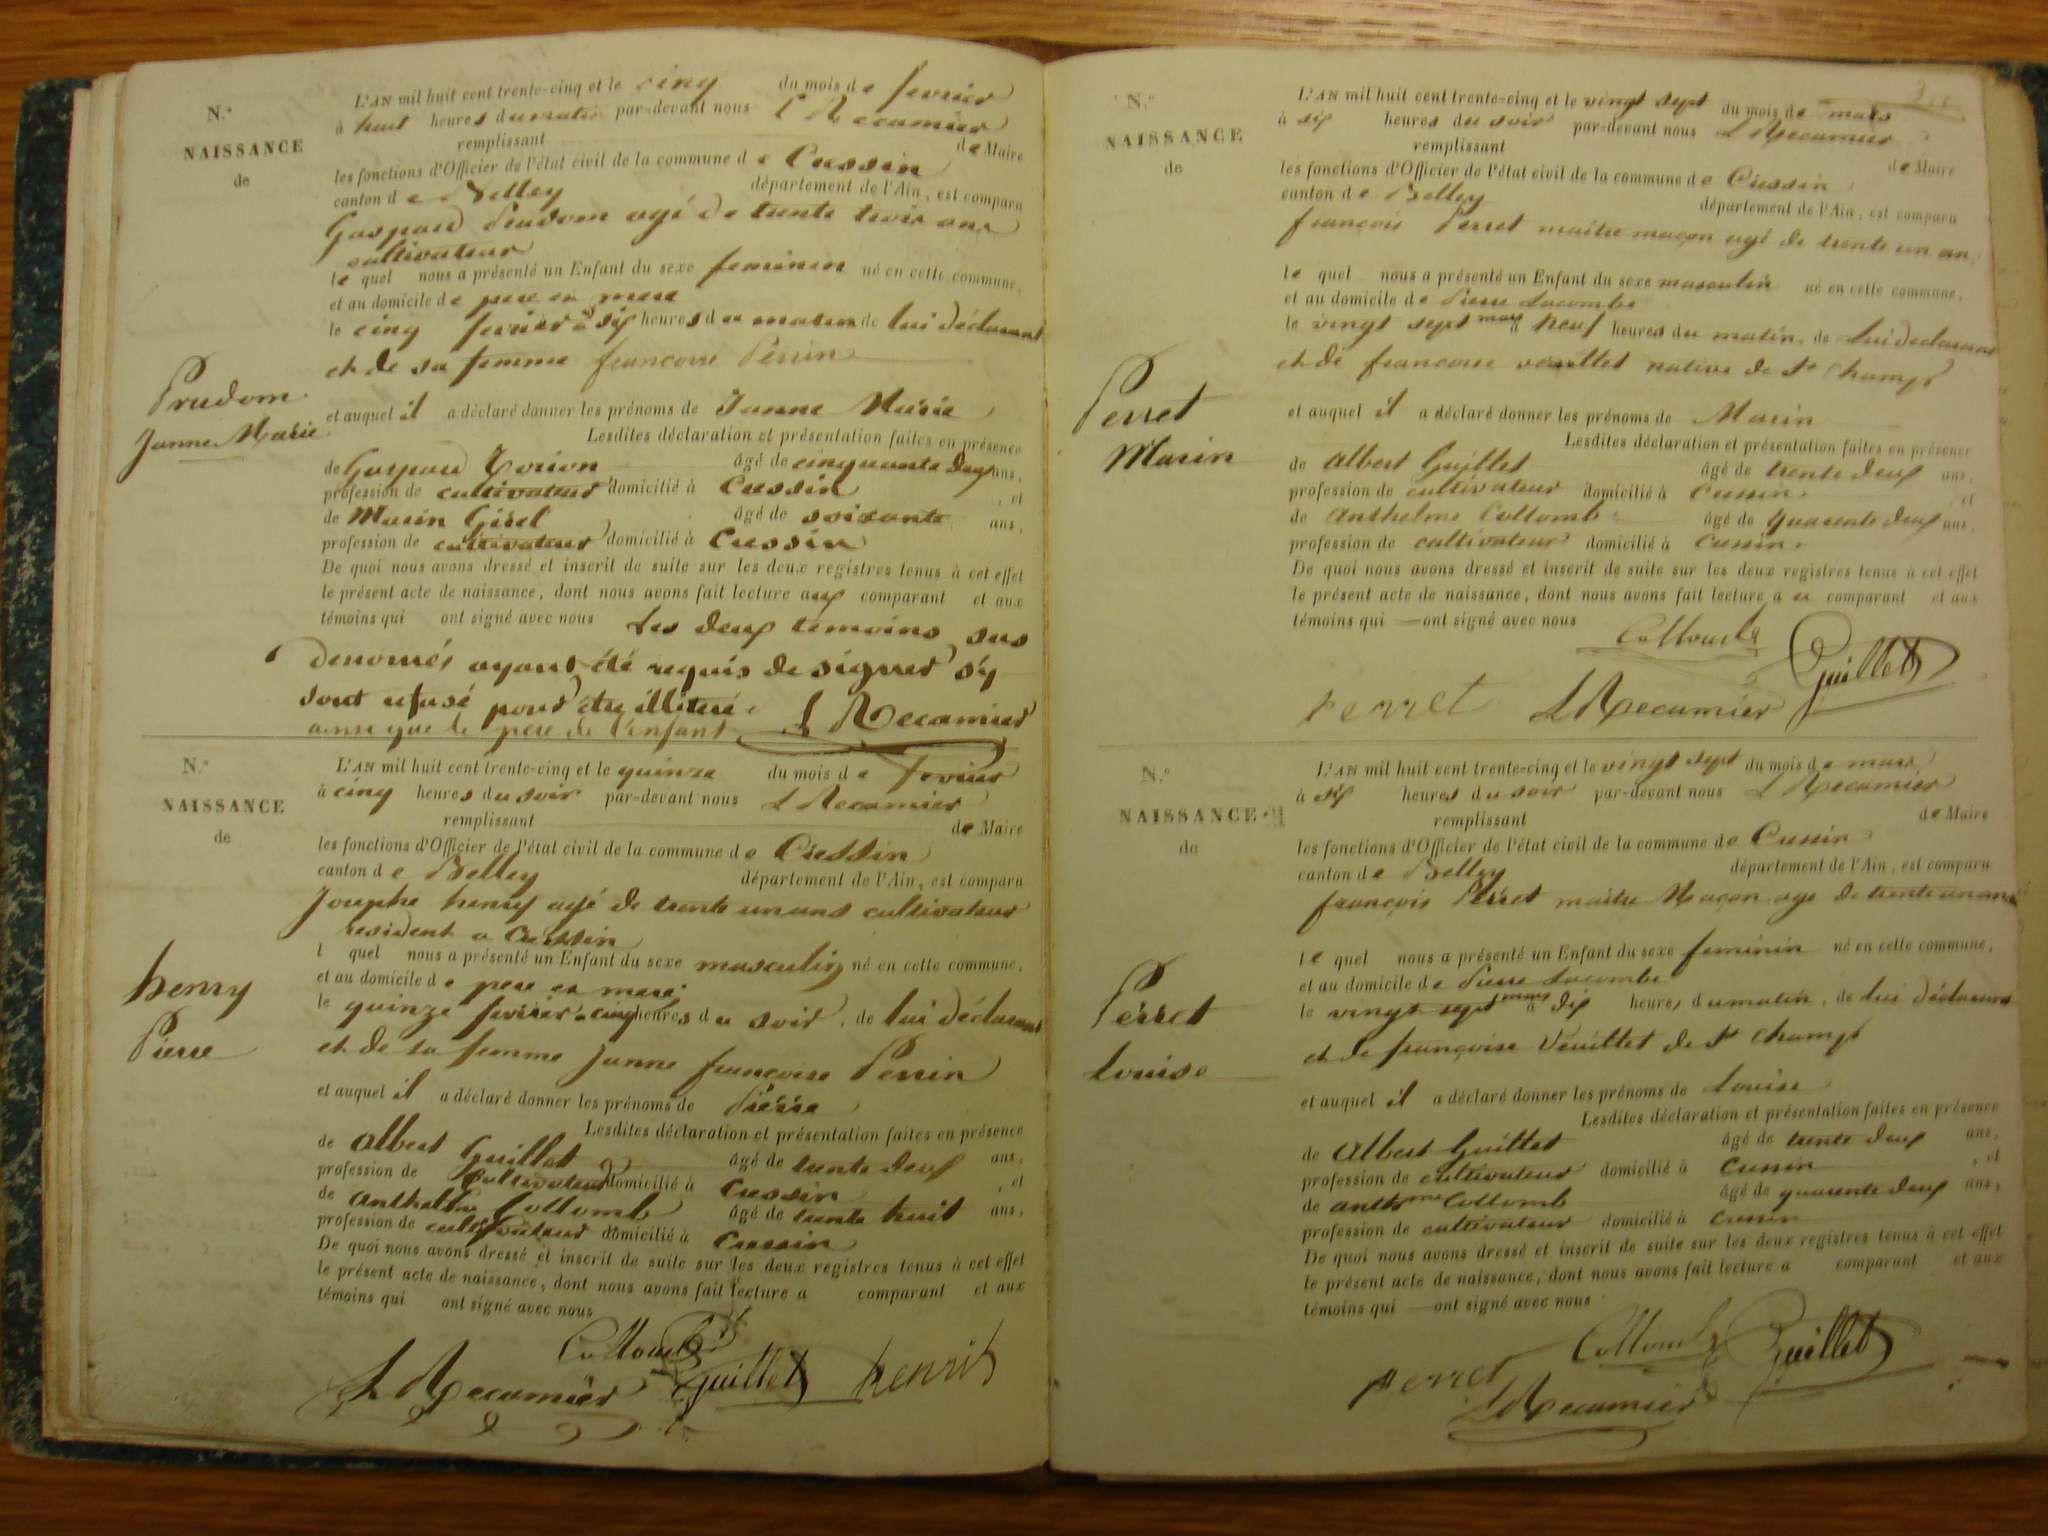 N.o
NAISSANCE
de
Prudom
Janne Marie
L'AN mil huit cent trente-cinq et le cinq du mois de fevrier
à huit heures du matin par-devant nous L Recamier
remplissant de Maire
les fonctions d'Officier de l'état civil de la commune de Cressin
canton de Belley département de l'Ain, est comparu
Gaspard Prudom agé de trente trois ans
cultivateur
le quel nous a présenté un Enfant du sexe feminin né en cette commune,
et au domicile de pere et mere
le cinq fevrier à six heures du matin de lui déclarant
et de sa femme francoise Perrin
et auquel il a déclaré donner les prénoms de Janne Marie
Lesdites déclaration et présentation faites en présence
de Gaspard âgé de cinquante deux ans,
profession de cultivateur domicilié à Cressin , et
de Marin Girel âgé de soisante ans,
profession de cultivateur domicilié à Cressin
De quoi nous avons dressé et inscrit de suite sur les deux registres tenus à cet effet
le présent acte de naissance, dont nous avons fait lecture aux comparant et aux
témoins qui ont signé avec nous Les deux temoins sus
denomés ayant été requis de signer s'y
sont refusé pour être illiteré
ainsi que le pere de l'enfant L Recamier
N.o
NAISSANCE
de
henry
Pierre
L'AN mil huit cent trente-cinq et le quinze du mois de Fevrier
à cinq heures du soir par-devant nous L Recamier
remplissant de Maire
les fonctions d'Officier de l'état civil de la commune de Cressin
canton de Belley département de l'Ain, est comparu
Josephe henry agé de trente un ans cultivateur
resident a Cressin
l quel nous a présenté un Enfant du sexe masculin né en cette commune,
et au domicile de pere et mere
le quinze fevrier à cinq heures du soir, de lui déclarant
et de sa femme Janne francoise Perrin
et auquel il a déclaré donner les prénoms de Pierre
Lesdites déclaration et présentation faites en présence
de Albert Guillet âgé de trente deux ans,
profession de Cultivateur domicilié à Cressin , et
de Anthelme Collomb âgé de trente huit ans,
profession de cultivateur domicilié à Cressin
De quoi nous avons dressé et inscrit de suite sur les deux registres tenus à cet effet
le présent acte de naissance, dont nous avons fait lecture a comparant et aux
témoins qui ont signé avec nous
Collomb
L Recamier Guillet henri
N.o
NAISSANCE
de
Perret
Marin
L'AN mil huit cent trente-cinq et le vingt sept du mois de mars
à six heures du soir par-devant nous L Recamier
remplissant de Maire
les fonctions d'Officier de l'état civil de la commune de Cressin
canton de Belley département de l'Ain, est comparu
françois Perret maitre maçon agé de trente un an
le quel nous a présenté un Enfant du sexe masculin né en cette commune,
et au domicile de Pierre Lacombe
le vingt sept mars à neuf heures du matin, de lui déclarant
et de francoise veuillet native de St Champ
et auquel il a déclaré donner les prénoms de Marin
Lesdites déclaration et présentation faites en présence
de Albert Guillet âgé de trente deux ans,
profession de cultivateur domicilié à Cressin , et
de Anthelme Collomb âgé de quarente deux ans,
profession de cultivateur domicilié à Cressin
De quoi nous avons dressé et inscrit de suite sur les deux registres tenus à cet effet
le présent acte de naissance, dont nous avons fait lecture a u comparant et aux
témoins qui ont signé avec nous
Collomb Guillet
perret L Recamier
N.o
NAISSANCE
de
Perret
Louise
L'AN mil huit cent trente-cinq et le vingt sept du mois de mars
à six heures du soir par-devant nous L Recamier
remplissant de Maire
les fonctions d'Officier de l'état civil de la commune de Cressin
canton de Belley département de l'Ain, est comparu
françois Perret maitre Maçon age de trente un ans
le quel nous a présenté un Enfant du sexe feminin né en cette commune,
et au domicile de Pierre Lacombe
le vingt sept mars à dix heures du matin, de lui déclarant
et de françoise Veuillet de St Champ
et auquel il a déclaré donner les prénoms de Louise
Lesdites déclaration et présentation faites en présence
de Albert Guillet âgé de trente deux ans,
profession de cultivateur domicilié à Cressin , et
de Collomb âgé de quarente deux ans,
profession de cultivateur domicilié à Cressin
De quoi nous avons dressé et inscrit de suite sur les deux registres tenus à cet effet
le présent acte de naissance, dont nous avons fait lecture a comparant et aux
témoins qui ont signé avec nous
Collomb Guillet
perret
L Recamier